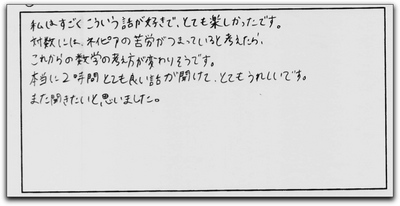 私はすごくこういう話が好きで、とても楽しかったです。
対数には、ネイピアの苦労がつまっていると考えたら、
これからの数学の考え方が変わりそうです。
本当に2時間とても良い話が聞けて、とてもうれしいです。
また聞きたいと思いました。